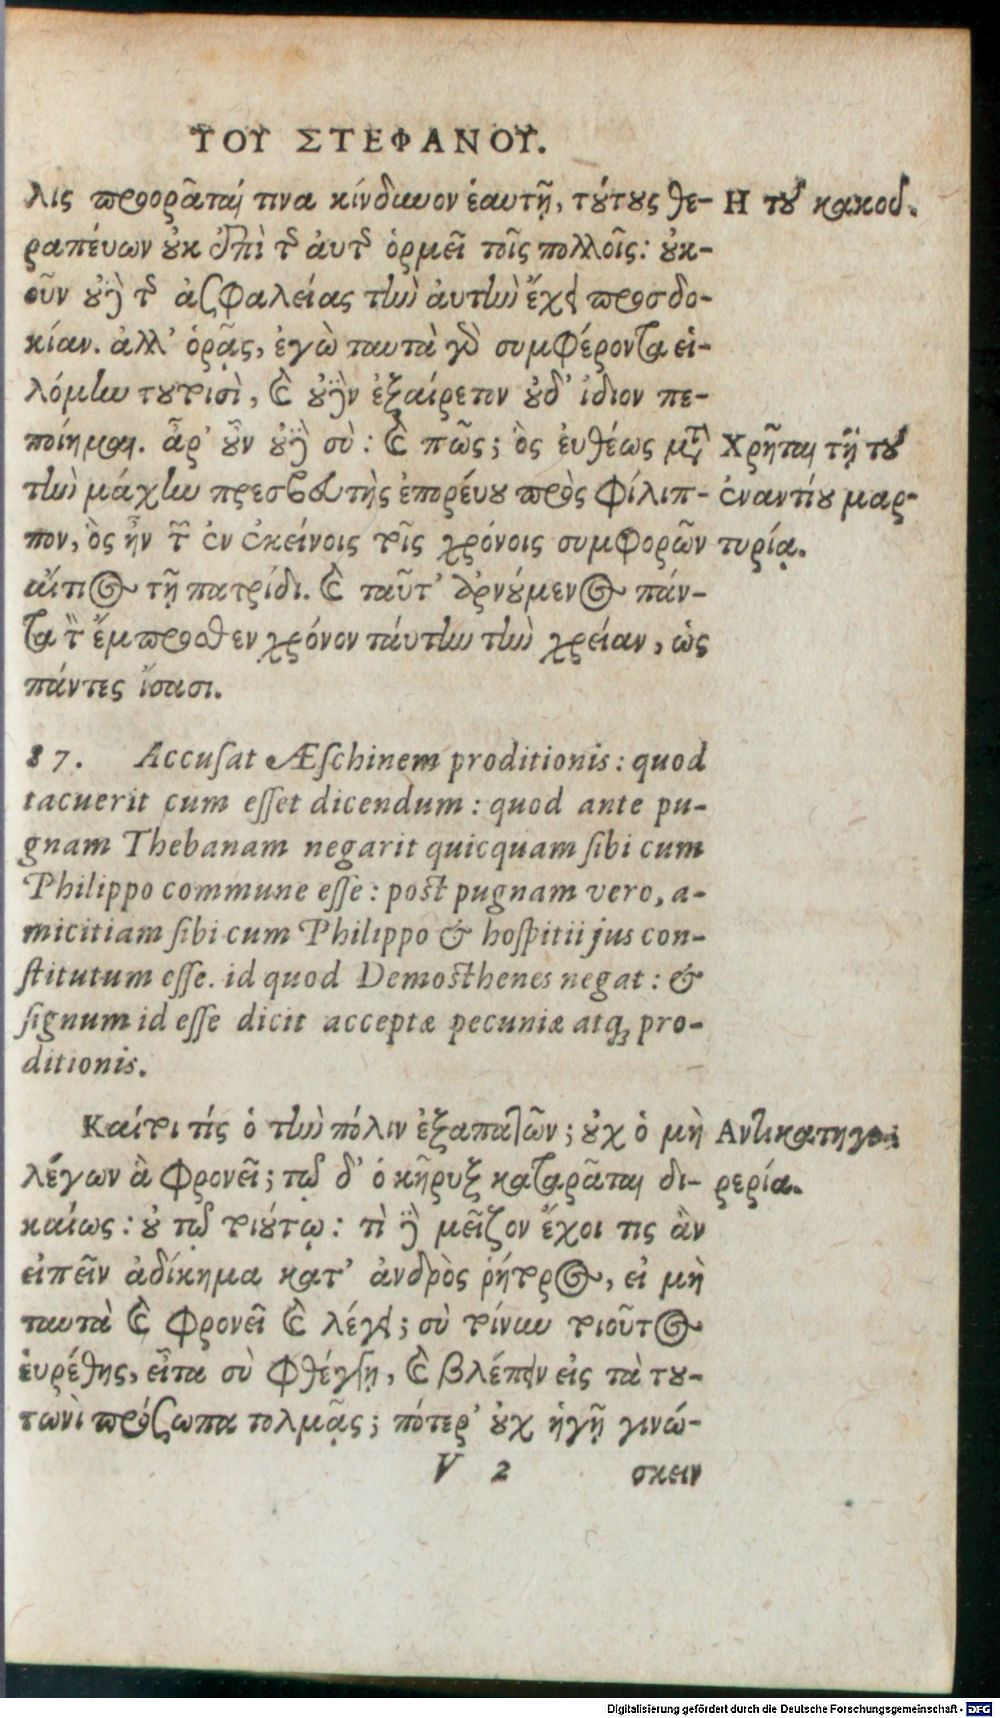 ΤΟΥ ΣΤΕΦΑΝΟΥ.
λις προορᾶταί τινα κίνδυνον ἑαυτῇ, τούτους θε-
ραπεύων οὐκ ἐπὶ τῆς αὐτῆς ὁρμεῖ τοῖς πολλοῖς: οὐκ-
οῦν οὐδὲ τῆς ἀσφαλείας τὴν αὐτὴν ἔχει προσδο-
κίαν. ἀλλ' ὁρᾷς, ἐγὼ ταυτὰ γὸ συμφέροντα εἱ-
λόμην τουτοισὶ, καὶ οὐδὲν ἐξαίρετον οὐδ' ἴδιον πε-
ποίημαι. ἆρ' οὖν οὐδὲ σὺ: καὶ πῶς; ὃς εὐθέως μετὰ
τὴν μάχην πρεσβευτὴς ἐπορεύου πρὸς Φίλιπ-
πον, ὃς ἦν τῶν ἐν ἐκείνοις τοῖς χρόνοις συμφορῶν
αἴτιος τῇ πατρίδι. καὶ ταῦτ' ἀρνούμενος πάν-
τα τὸν ἔμπροσθεν χρόνον ταύτην τὴν χρείαν, ὡς
πάντες ἴσασι.
Η τοῦ κακοδ.
Χρῆται τῇ τοῦ
ἐναντίου μαρ-
τυρίᾳ.
87. Accusat Æschinem proditionis: quod
tacuerit cum esset dicendum: quod ante pu-
gnam Thebanam negarit quicquam sibi cum
Philippo commune esse: post pugnam vero, a-
micitiam sibi cum Philippo & hospitii jus con-
stitutum esse. id quod Demosthenes negat: &
signum id esse dicit acceptæ pecuniæ atq; pro-
ditionis.
Καίτοι τίς ὁ τὴν πόλιν ἐξαπατῶν; οὐχ ὁ μὴ
λέγων ἃ φρονεῖ; τῷ δ' ὁ κῆρυξ καταρᾶται δι-
καίως: οὐ τῷ τοιούτῳ: τὶ δὲ μεῖζον ἔχοι τις ἂν
εἰπεῖν ἀδίκημα κατ' ἀνδρὸς ῥήτορος, εἰ μὴ
ταυτὰ καὶ φρονεῖ καὶ λέγει; σὺ τοίνυν τοιοῦτος
εὑρέθης, εἶτα σὺ φθέγγῃ, καὶ βλέπειν εἰς τὰ του-
τωνὶ πρόσωπα τολμᾷς; πότερ' οὐχ ἡγῇ γινώ-
Αντικατηγο-
ρερία.
V 2 σκειν
Digitalisierung gefördert durch die Deutsche Forschungsgemeinschaft - DFG